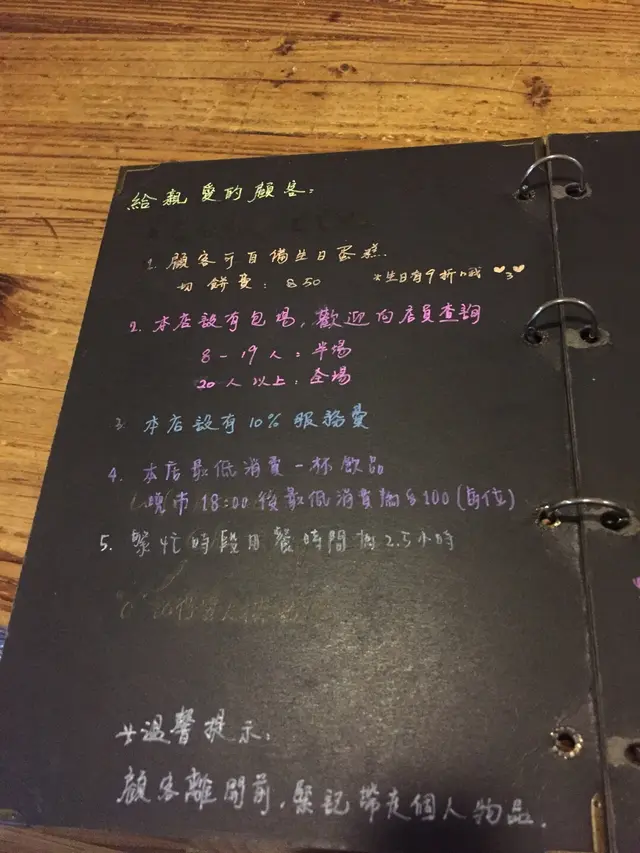 給親愛的顧客:
1. 顧客可自備生日蛋糕.
切餅費: $50 *生日有9折哦 ♥3♥
2. 本店設有包場, 歡迎向店員查詢
8-19人: 半場
20人以上: 全場
3. 本店設有10%服務費
4. 本店最低消費一杯飲品
(晚市18:00後最低消費為$100(每位)
5. 繁忙時段用餐時間為2.5小時
溫馨提示:
顧客離開前, 緊記帶走個人物品.